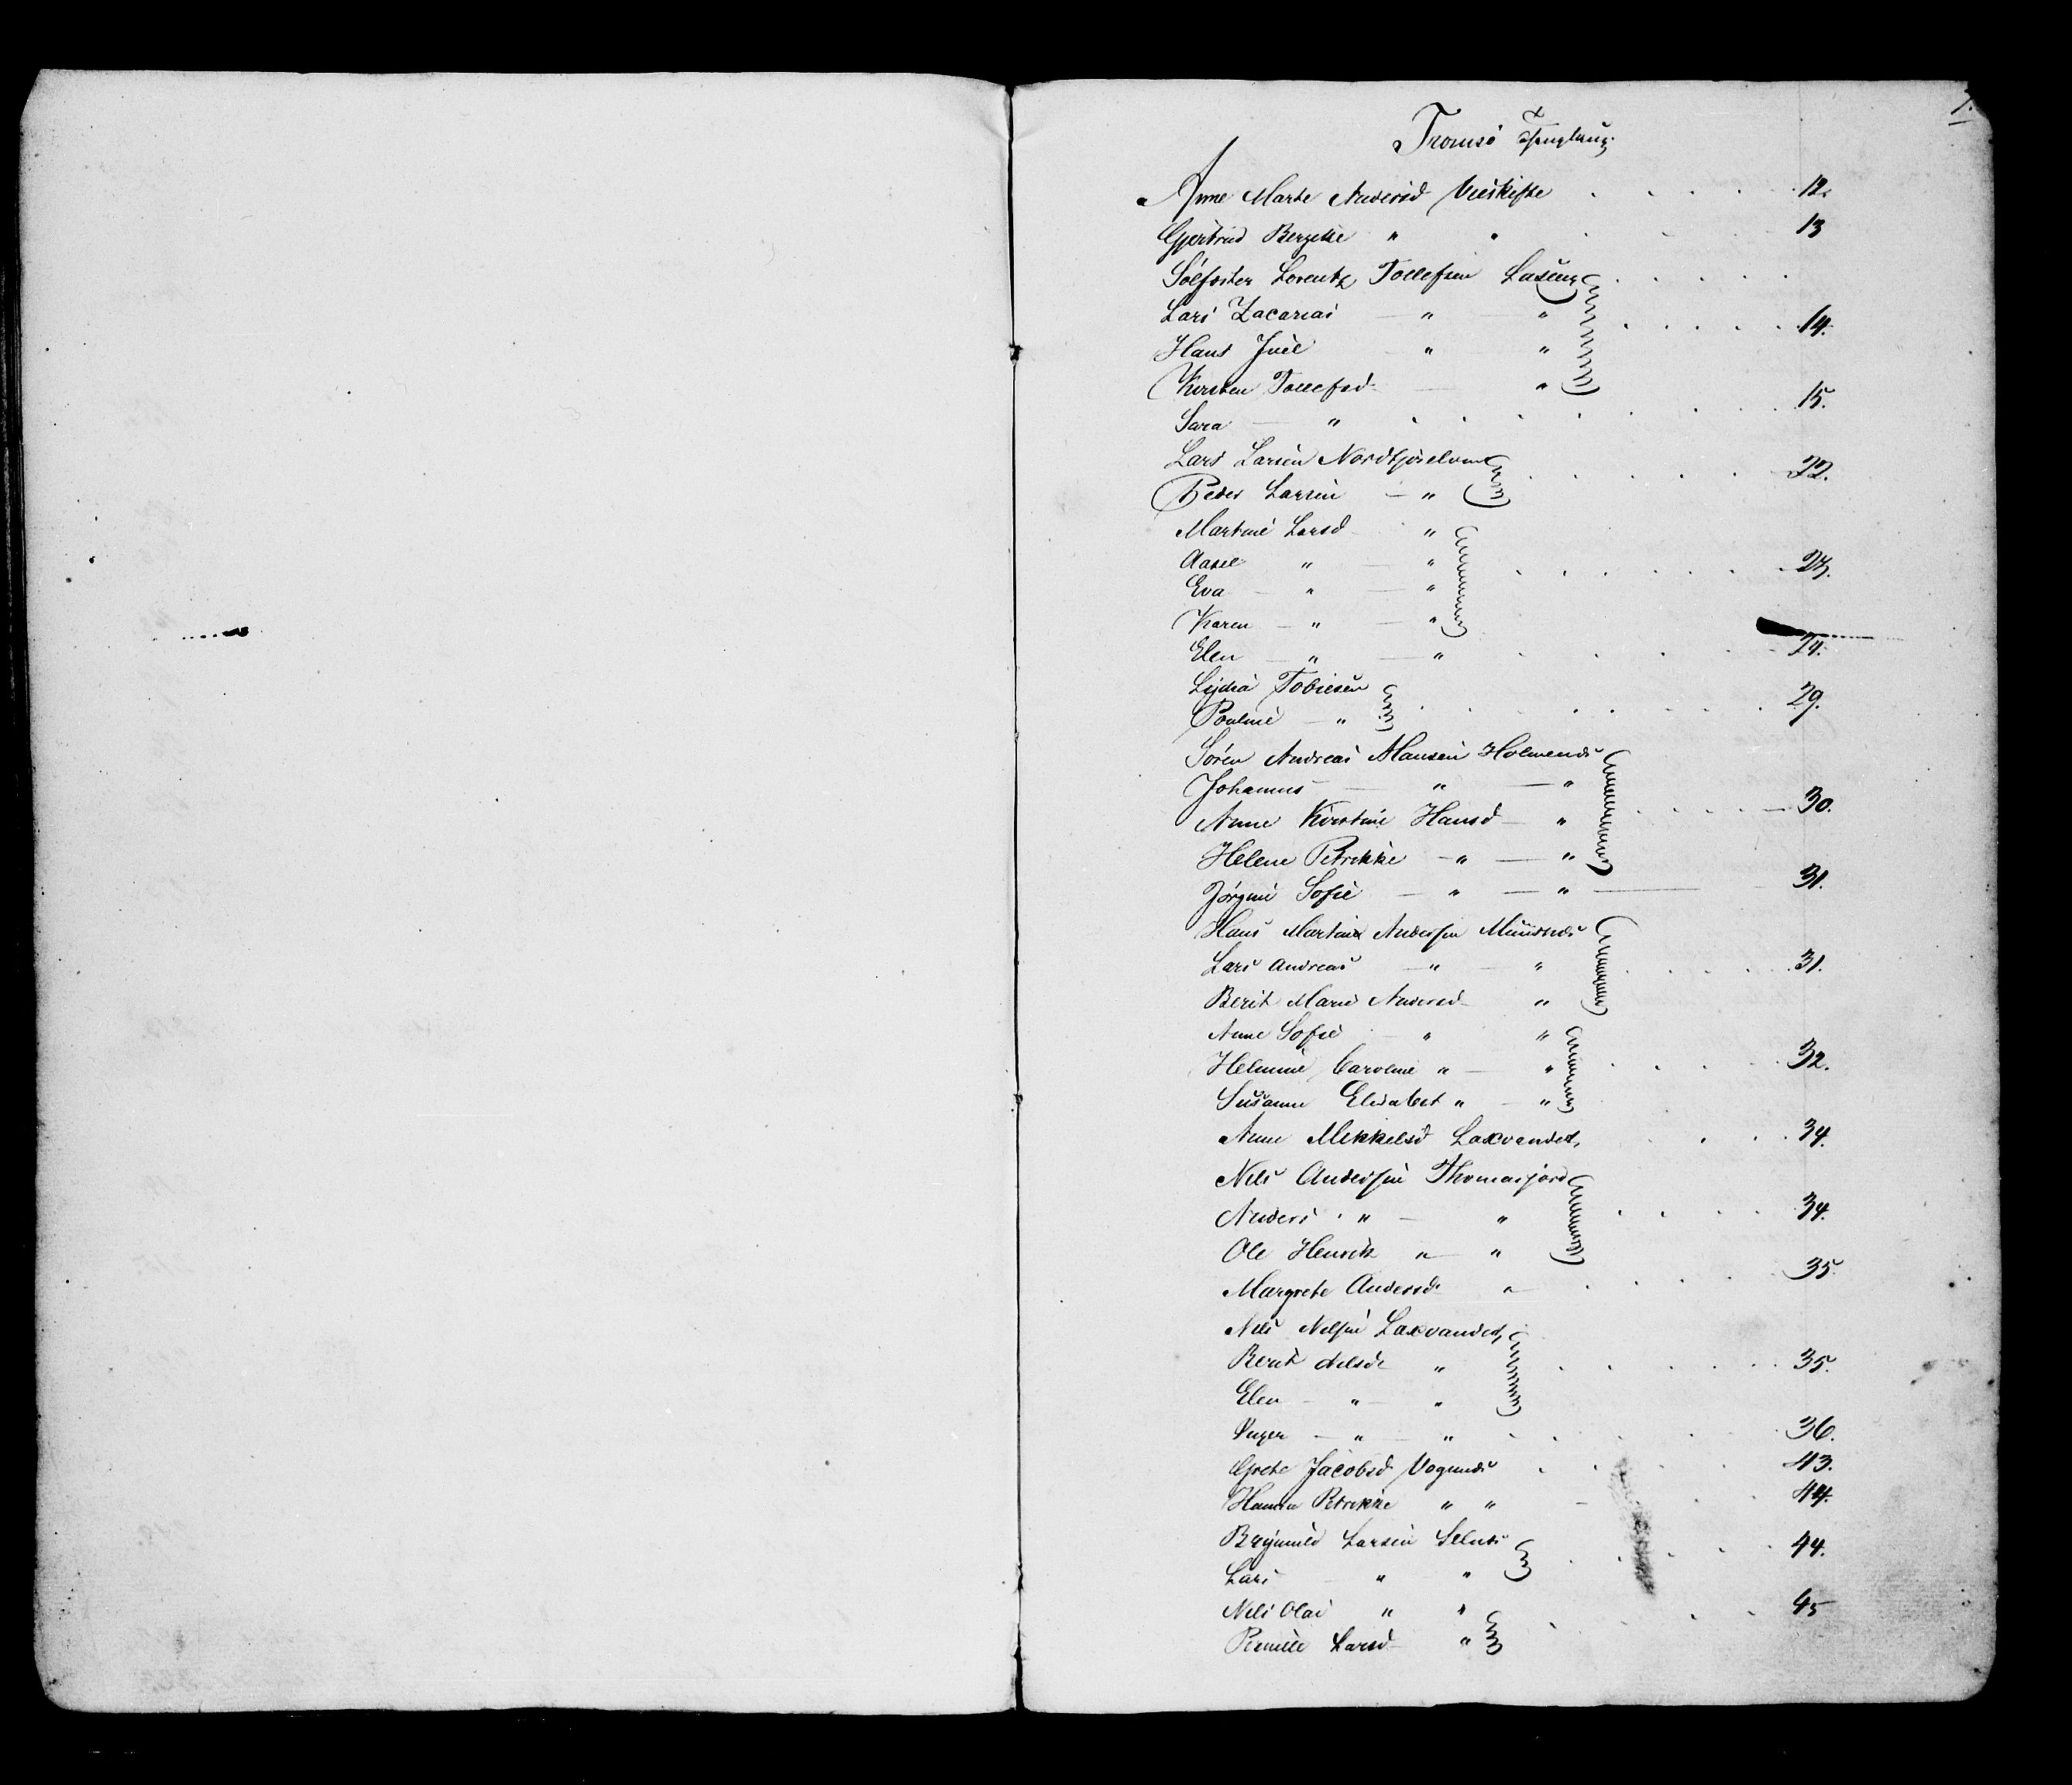 7.
Tromsö Thinglaug.
Anne Marte Andersd Vieskifte . . . . 12.
Gjertrud Bergitte " " . . . 13
Sölfester Lorentz Tollefsen Laxeng . . . . .
Lars Zacarias — " — " . . . . . 14.
Hans Juel " "
Kirsten Tollefsd — "
Sara — " . . . . . . 15.
Lars Larsen Nordkjoselven . . . . . 22.
Peder Larsen — "
Martine Larsd "
Aasel " — " . . . . . . . 23.
Eva — " — "
Karen — " — "
Elen — " — " . . . . . 24.
Lydia Tobiesen
Pouline — " . . . . . . . 29.
Sören Andreas Hansen Holmenes
Johannes — " — "
Anne Kirstine Hansd — " . . . . . 30.
Helene Petrikke — " — "
Jörgine Sofie — " — " — 31.
Hans Martin Andersen
Lars Andreas — " — " . . . . . 31.
Berit Marie Andersd "
Anne Sofie " "
Helmine Caroline " — " . . . . . 32.
Susanne Elisabet " — "
Anne Mikkelsd Laxvandet, . . . . 34.
Nils Andersen Thomasjord
Anders " — " . . . . 34.
Ole Henrik " — "
Margrete Andersd. " . . . . . 35.
Nils Nilsen Laxvandet,
Berit Nilsd. " . . . . . . 35.
Elen — " — "
Inger — " — " . . . . . . 36.
Grete Jacobsd Vognes . . . . . 43.
Hanna Petrikke " " — . . 44.
Brynild Larsen Selnes
Lars " " . . . . . 44.
Nils Olai " " . . . . 45
Pernille Larsd "